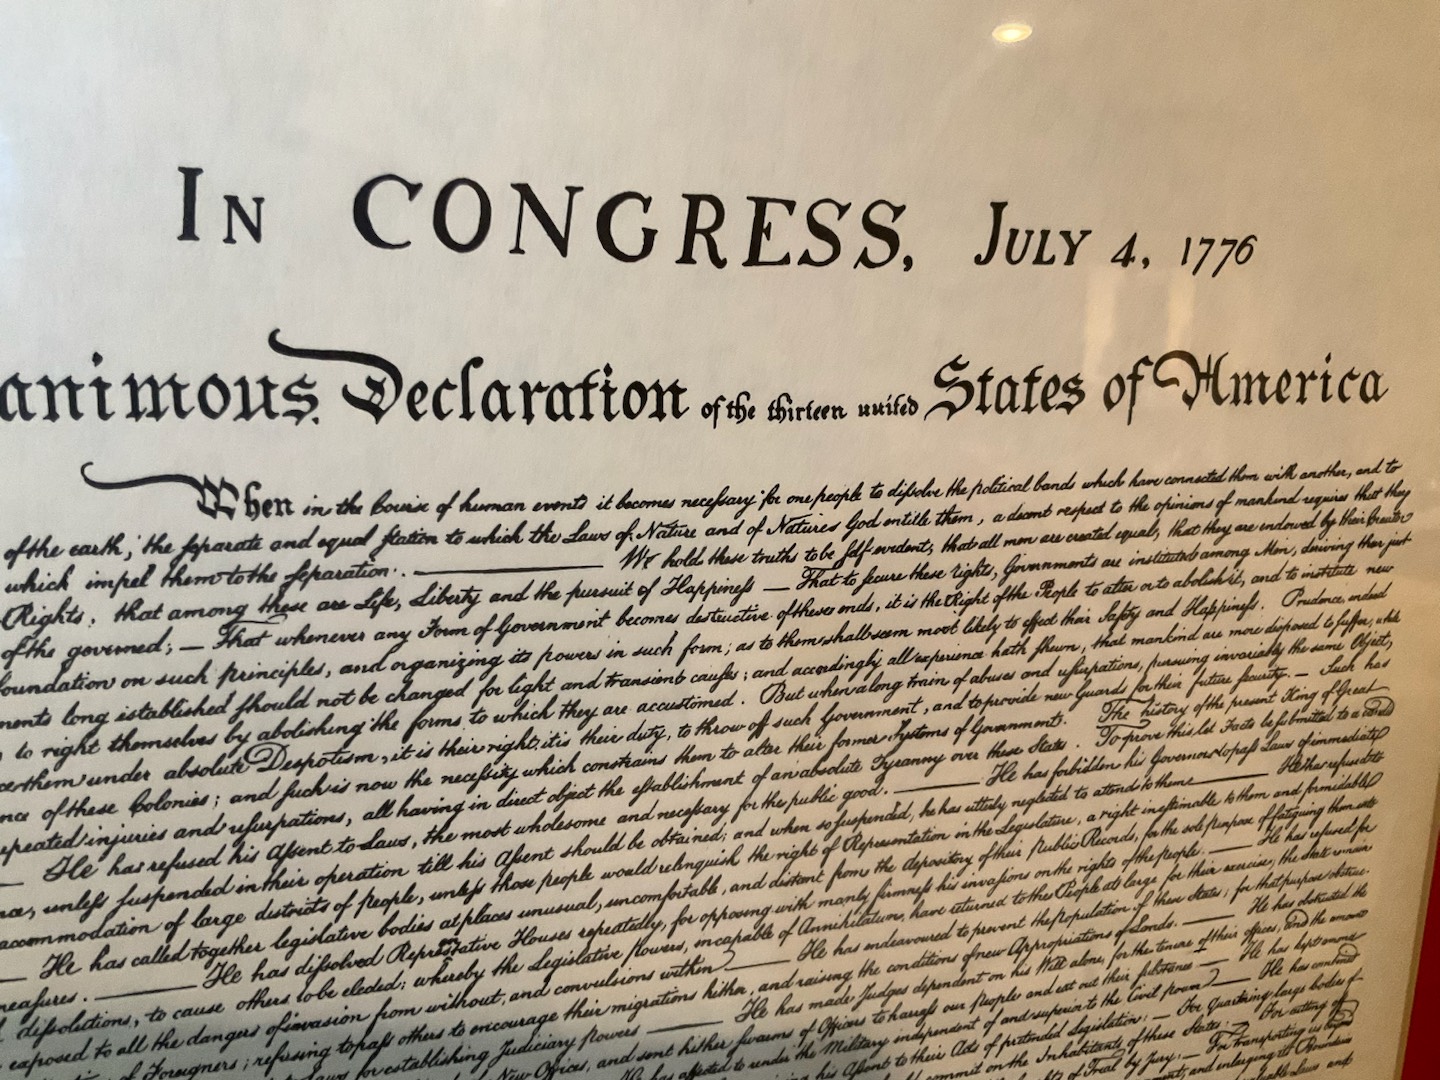 IN CONGRESS, JULY 4, 1776
animous Declaration of the thirteen united States of America
When in the Course of human events it becomes necessary for one people to dissolve the political bands which have connected them with another, and to
of the earth, the separate and equal station to which the Laws of Nature and of Nature's God entitle them, a decent respect to the opinions of mankind requires that they
which impel them to the separation. We hold these truths to be self-evident, that all men are created equal, that they are endowed by their Creator
Rights, that among these are Life, Liberty and the pursuit of Happiness — That to secure these rights, Governments are instituted among Men, deriving their just
of the governed; — That whenever any Form of Government becomes destructive of these ends, it is the Right of the People to alter or to abolish it, and to institute new
foundation on such principles, and organizing its powers in such form; as to them shall seem most likely to effect their Safety and Happiness. Prudence, indeed
ments long established should not be changed for light and transient causes; and accordingly all experience hath shewn, that mankind are more disposed to suffer, while
to right themselves by abolishing the forms to which they are accustomed. But when a long train of abuses and usurpations, pursuing invariably the same Object,
ce them under absolute Despotism, it is their right, it is their duty, to throw off such Government, and to provide new Guards for their future security. — Such has
nce of these Colonies; and such is now the necessity which constrains them to alter their former Systems of Government. The history of the present King of Great
epeated injuries and usurpations, all having in direct object the establishment of an absolute Tyranny over these States. To prove this let Facts be submitted to a
He has refused his Assent to Laws, the most wholesome and necessary for the public good. He has forbidden his Governors to pass Laws of immediate
nce, unless suspended in their operation till his Assent should be obtained; and when so suspended, he has utterly neglected to attend to them. He has refused to
accommodation of large districts of people, unless those people would relinquish the right of Representation in the Legislature, a right inestimable to them and formidable
He has called together legislative bodies at places unusual, uncomfortable, and distant from the depository of their Public Records, for the sole purpose of fatiguing them into
measures. He has dissolved Representative Houses repeatedly, for opposing with manly firmness his invasions on the rights of the people. He has refused for
dissolutions, to cause others to be elected; whereby the Legislative powers, incapable of Annihilation, have returned to the People at large for their exercise; the state
exposed to all the dangers of invasion from without, and convulsions within. He has endeavoured to prevent the population of these States; for that purpose
of Foreigners; refusing to pass others to encourage their migrations hither, and raising the conditions of new Appropriations of Lands. He has obstructed the
Laws for establishing Judiciary powers He has made Judges dependent on his Will alone, for the tenure of their offices, and the
New Offices, and sent hither swarms of Officers to harass our people and eat out their substance He has kept among
He has affected to render the Military independent of and superior to the Civil power He has combined
his Assent to their Acts of pretended Legislation: — For Quartering large bodies of
commit on the Inhabitants of these States: For cutting off
of Trial by Jury; — For transporting us beyond
and enlarging its Boundaries
Laws and